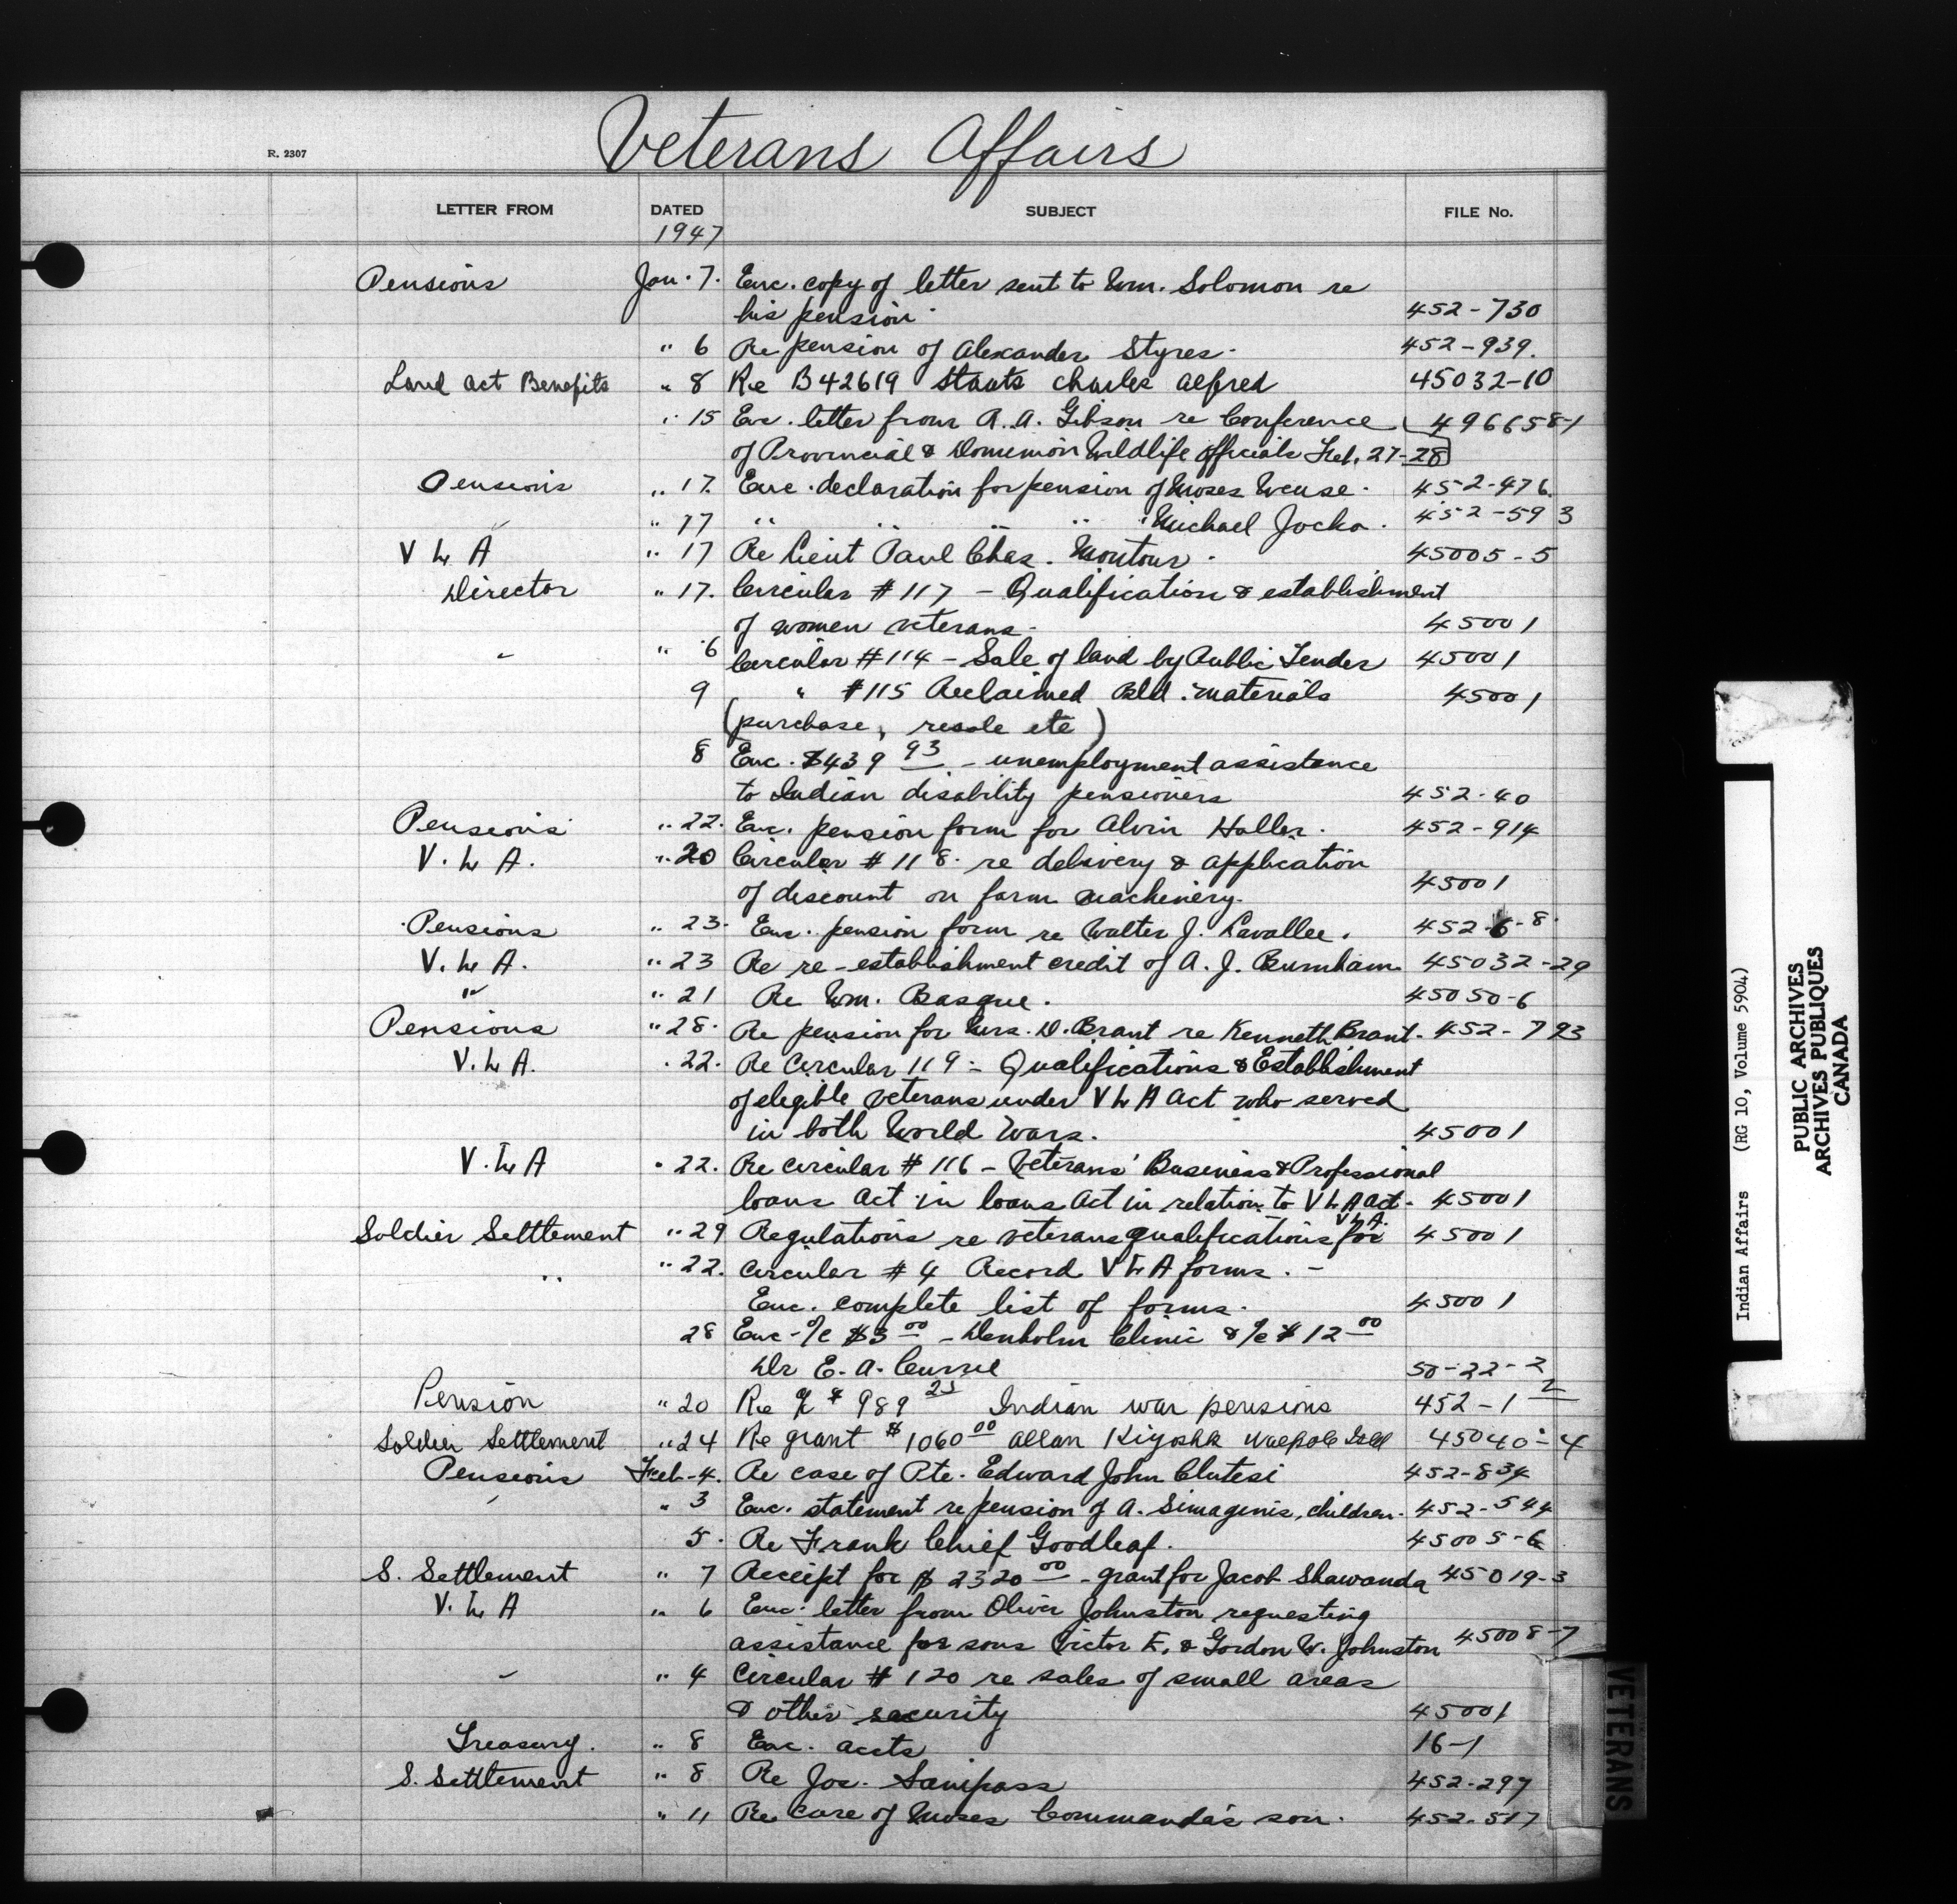 Veterans Affairs
R. 2307
LETTER FROM DATED SUBJECT FILE No.
1947
Pensions Jan. 7. Enc. copy of letter sent to Wm. Solomon re
his pension. 452-730
" 6 Re pension of Alexander Styres. 452-939.
Land Act Benefits " 8 Re B42619 Staats Charles Alfred 45032-10
" 15 Enc. letter from A. A. Gibson re Conference 496658-1
of Provincial & Dominion Wildlife Officials Feb. 27-28
Pensions " 17. Enc. declaration for pension of Moses Weuse. 452-476.
" 17 " " " " " Michael Jocko. 452-593
V L A " 17 Re Lieut Paul Chas. Montour. 45005-5
Director " 17. Circular # 117 - Qualification & establishment
of women veterans. 45001
" " 6 Circular # 114 - Sale of land by Public Tender 45001
9 " # 115 Reclaimed Bld. materials 45001
(purchase, resale etc)
8 Enc. $439 93 - unemployment assistance
to Indian disability pensioners 452-40
Pensions " 22. Enc. pension form for Alvin Haller. 452-914
V. L A. " 20 Circular # 118. re delivery & application
of discount on farm machinery. 45001
Pensions " 23. Enc. pension form re Walter J. Lavallee. 452-6-8
V. L A. " 23 Re re-establishment credit of A. J. Burnham. 45032-29
" " 21 Re Wm. Basque. 45050-6
Pensions " 28. Re pension for Mrs. D. Brant re Kenneth Brant. 452-793
V. L A. " 22. Re Circular 119 - Qualifications & Establishment
of elegible veterans under V L A Act who served
in both World Wars. 45001
V. L A " 22. Re circular # 116 - Veterans' Business & Professional
loans Act in loans Act in relation to V L A Act. 45001
V L A.
Soldier Settlement " 29 Regulations re veterans qualifications for 45001
" " 22. Circular # 4 Record V L A forms. -
Enc. complete list of forms. 45001
28 Enc - a/c $3 00 - Denholm Clinic & a/c $12 00
Dr E. A. Currie 50-22-2
Pension " 20 Re a/c $ 989 25 Indian war pensions 452-1 2
Soldier Settlement " 24 Re grant $1060 00 Allan Kiyoshk Walpole Isld 45040-4
Pensions Feb-4. Re case of Pte. Edward John Clutesi 452-834
" " 3 Enc. statement re pension of A. Simaginis, children. 452-544
5. Re Frank Chief Goodleaf. 45005-6
S. Settlement " 7 Receipt for $ 2320 00 - grant for Jacob Shawanda 45019-3
V. L A " 6 Enc. letter from Oliver Johnston requesting
assistance for sons Victor E. & Gordon W. Johnston 45008-7
" " 4 Circular # 120 re sales of small areas
& other security 45001
Treasury. " 8 Enc. accts 16-1
S. Settlement " 8 Re Joe. Sanipass 452-297
" 11 Re care of Moses Commanda's son. 452-517
VETERANS
Indian Affairs (RG 10, Volume 5904)
PUBLIC ARCHIVES
ARCHIVES PUBLIQUES
CANADA